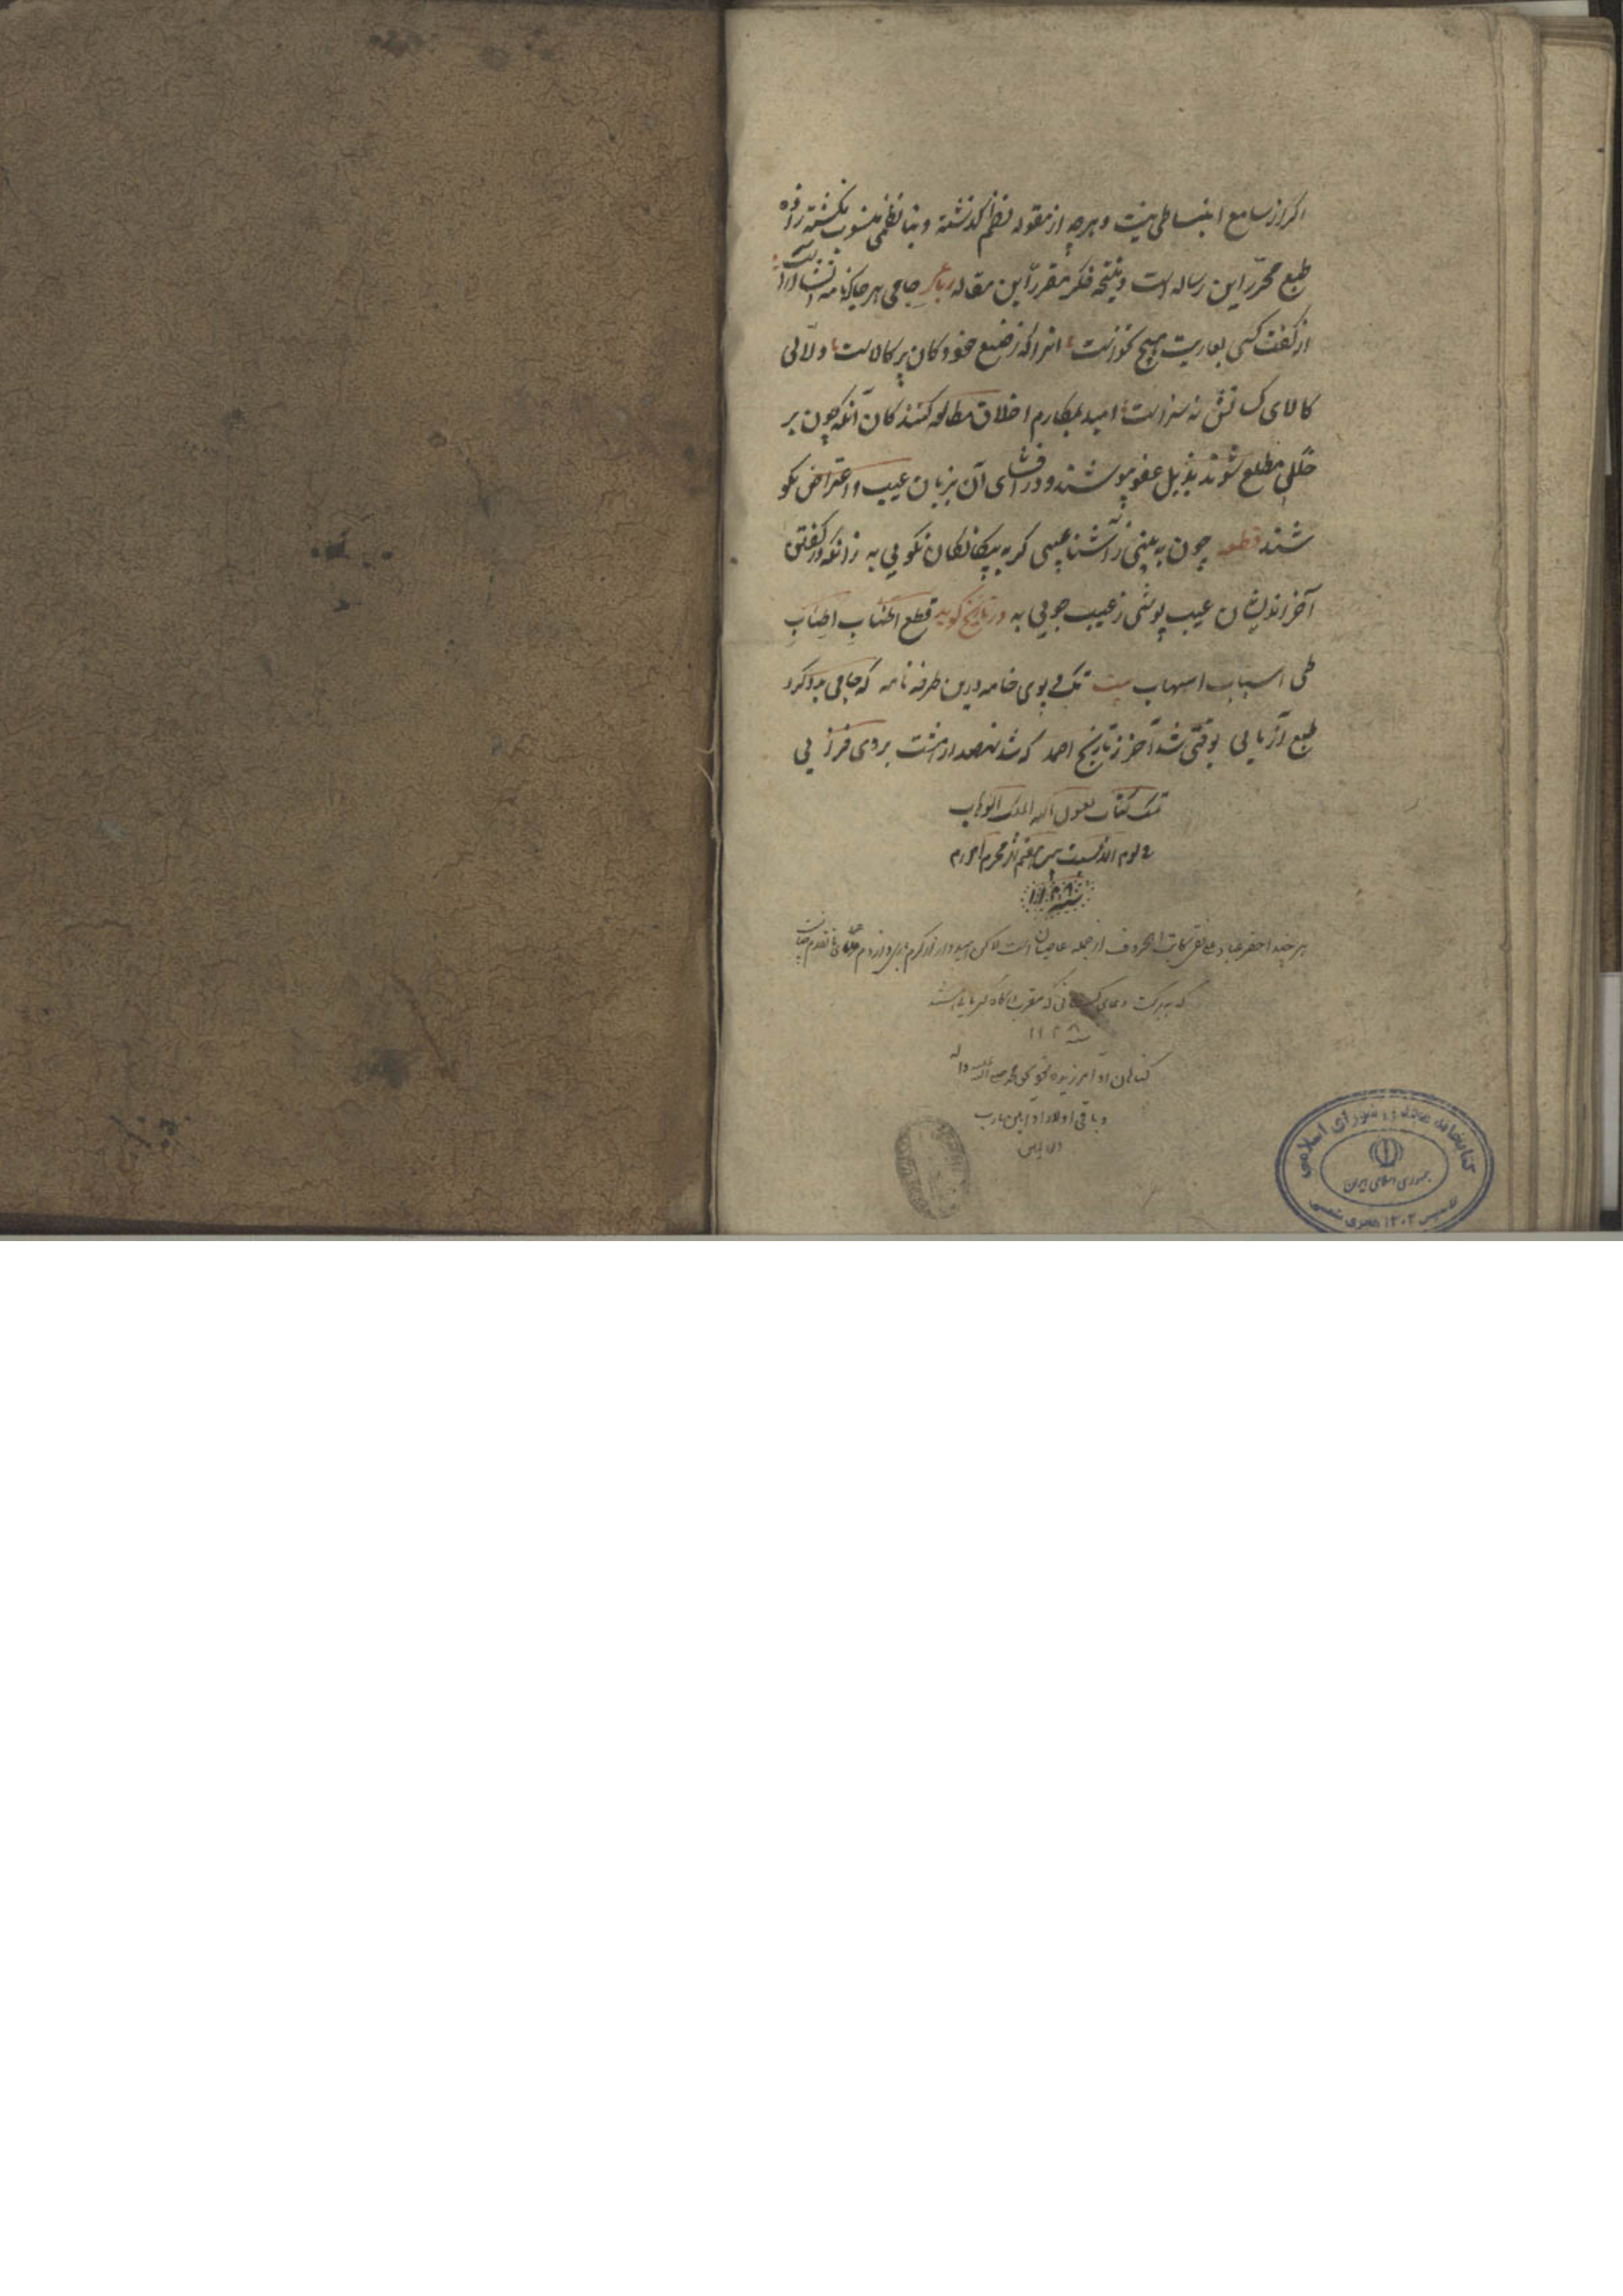 اکر از سامع انبساطی نیست و هرچه از مقوله نظم گذشته و بناظمی منسوب نکشته زاده
طبع محرر این رساله است و نتیجه فکر مقرر این مقاله رباعی جامی هر جا که نامه انشا آراست
از گفت کسی بعاریت هیچ نخواست انرا که ز صنع خود دکان پر کالاست دلالی
کالای کسانش نه سزاست امید بمکارم اخلاق مطالعه کنندکان آنکه چون بر
خللی مطلع شوند بذیل عفو بپوشند و در افشای آن بزبان عیب و اعتراض نکو
شند قطعه چون به بینی ز آشنا عیبی کر به بیکانکان نکویی به زانکه در کفتن
آخر اندیشان عیب پوشی ز عیب جویی به در تاریخ گوید قطع اطناب اطناب
طی اسباب اسهاب بیت تک و پوی خامه درین طرفه نامه که جامی بدو کرد
طبع آزمایی بوقتی شد آخر ز تاریخ احمد که شد نهصد ار هشت بروی فزایی
تمت کتاب بعون الله الملک الوهاب
فی یوم محرم الحرام
سنه ۱۱۲۸
هر چند احقر عباد کاتب الحروف از جمله عاصیان است لاکن امیدوار از کرم باری
که ببرکت دعای کسانی که مقرب درگاه کبریایی باشند
سنه ۱۱۲۸
کناهان او آمرزیده بحق محمد صلی الله علیه و آله
و باقی اولاد او آمین یارب
العالمین
کتابخانه مجلس شورای اسلامی
جمهوری اسلامی ایران
تاسیس ۱۳۰۲ هجری شمسی